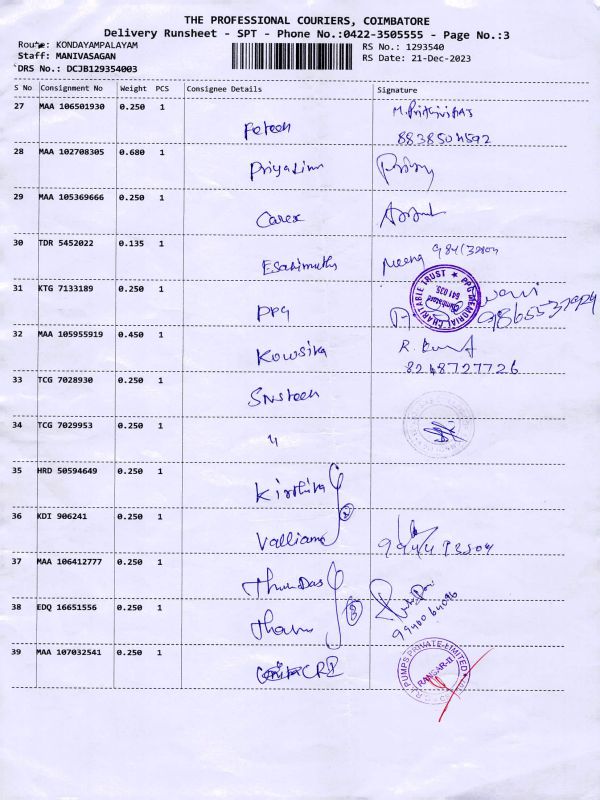 THE PROFESSIONAL COURIERS, COIMBATORE
Delivery Runsheet - SPT - Phone No.:0422-3505555 - Page No.:3
Route: KONDAYAMPALAYAM
RS No.: 1293540
Staff: MANIVASAGAN
RS Date: 21-Dec-2023
DRS No.: DCJB129354003
S No Consignment No Weight PCS Consignee Details Signature
27 MAA 106501930 0.250 1
8838504592
28 MAA 102708305 0.680 1
29 MAA 105369666 0.250 1 Carex
30 TDR 5452022 0.135 1 Esakimuthu Meena
31 KTG 7133189 0.250 1 PPG
PPG MEMORIAL CHARITABLE TRUST ★ 641 035
32 MAA 105955919 0.450 1 Kowsika
8248727726
33 TCG 7028930 0.250 1
34 TCG 7029953 0.250 1 4
35 HRD 50594649 0.250 1 Kirthika
36 KDI 906241 0.250 1 2
37 MAA 106412777 0.250 1
38 EDQ 16651556 0.250 1 2
9940064096
39 MAA 107032541 0.250 1 CRI
PUMPS PRIVATE LIMITED